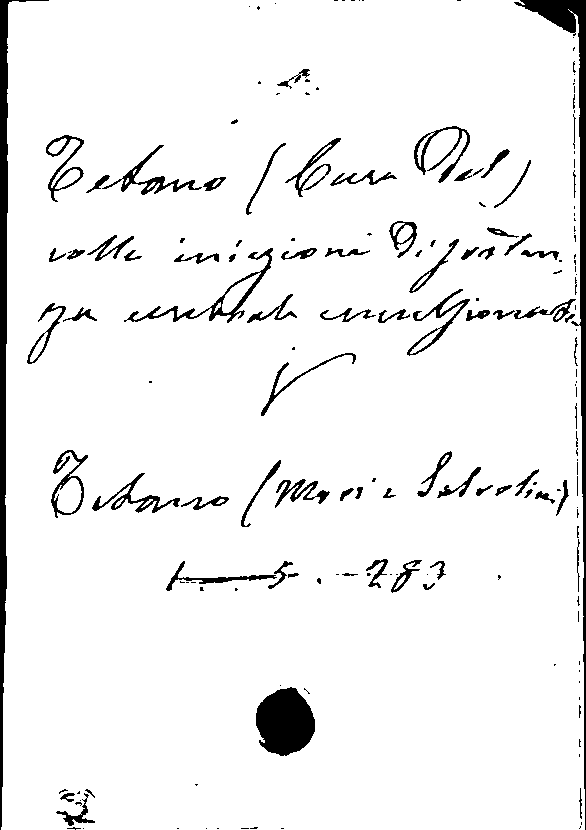 Tetano (Cura del)
colle iniezioni di sostan-
za cerebrale emulsionata
V
Tetano (Mori e Salvolini)
1 — 5. — 283